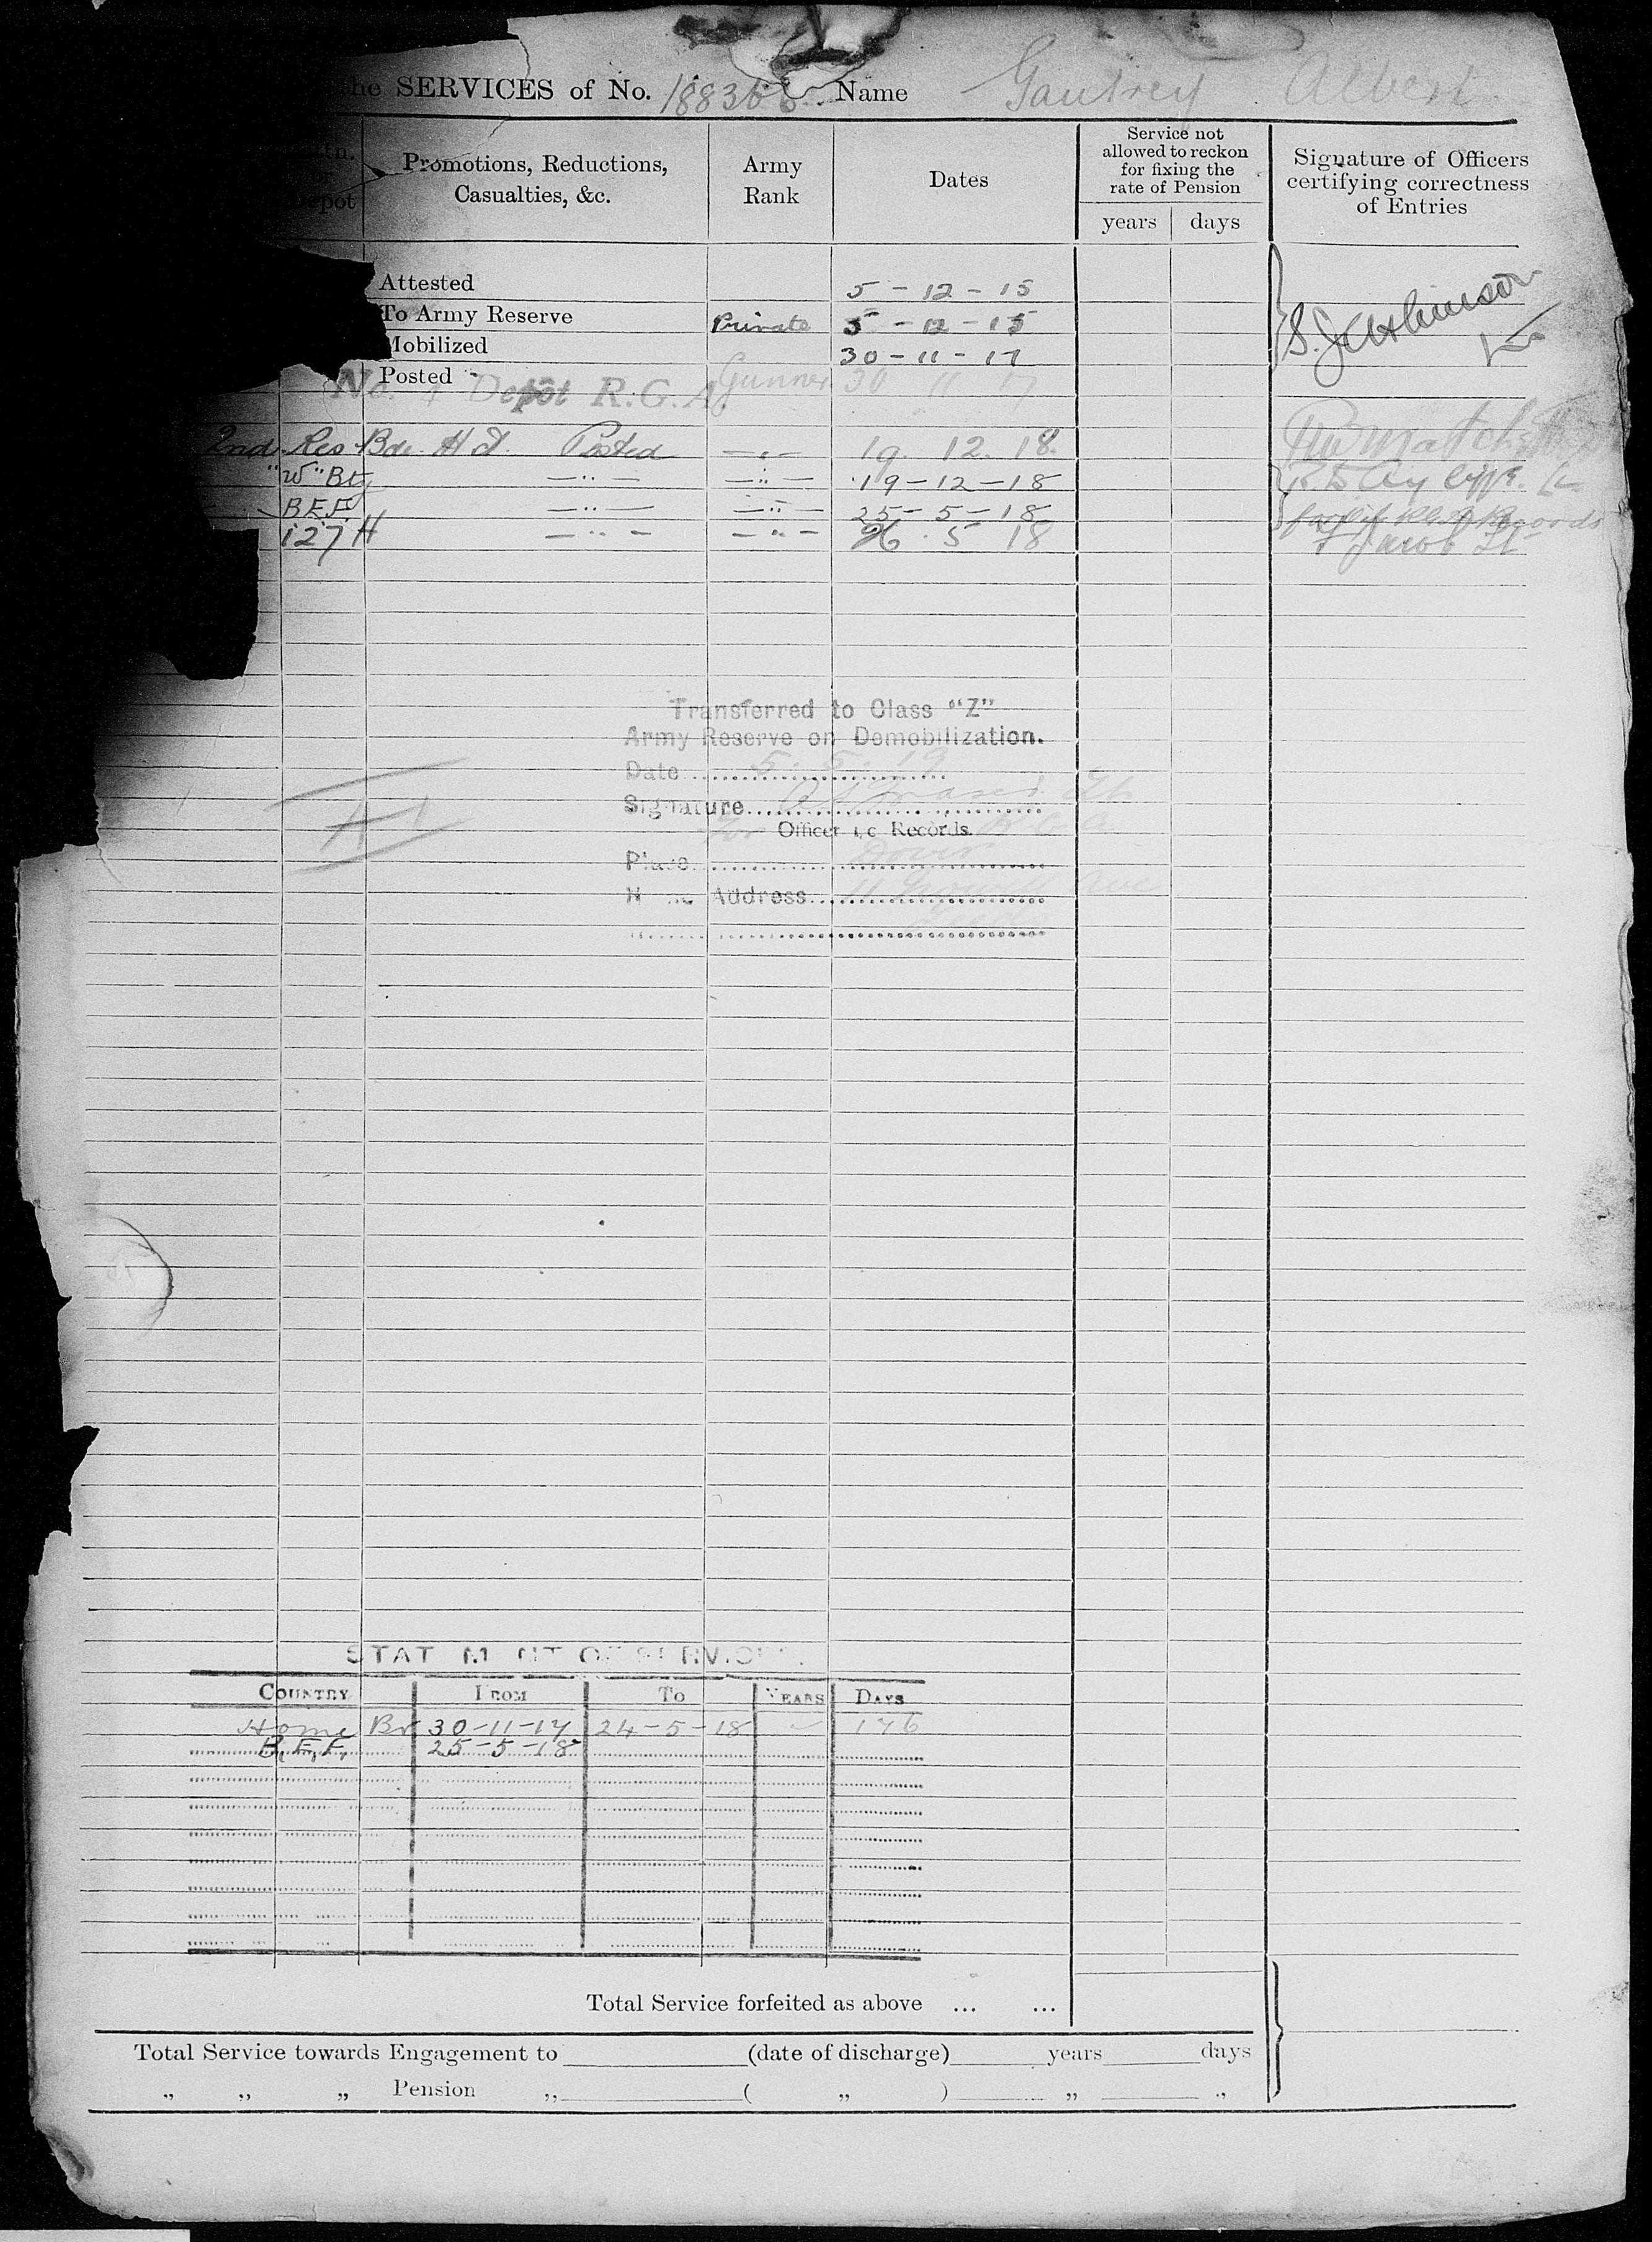 the SERVICES of No. 188366 Name Gautrey Albert
Promotions, Reductions, Casualties, &c.
Army Rank
Dates
Service not allowed to reckon for fixing the rate of Pension
years days
Signature of Officers certifying correctness of Entries
Depot
Attested 5-12-15
To Army Reserve Private 5-12-15
Mobilized 30-11-17
Posted Gunner 30 11 17
No. 1 Depôt R.G.A.
2nd Res Bde Posted 19.12.18
"W" Bty 19-12-18
B.E.F. 25-5-18
127 H 26.5 18
Transferred to Class "Z"
Army Reserve on Demobilization.
Date 5.5.19
Signature
Officer i/c Records.
Place Dover
Address
STAT M NT OF SERVIC
COUNTRY FROM TO YEARS DAYS
Home 30-11-17 24-5-18 176
B.E.F. 25-5-18
Total Service forfeited as above ... ...
Total Service towards Engagement to (date of discharge) years days
„ „ „ Pension „ ( „ ) „ „